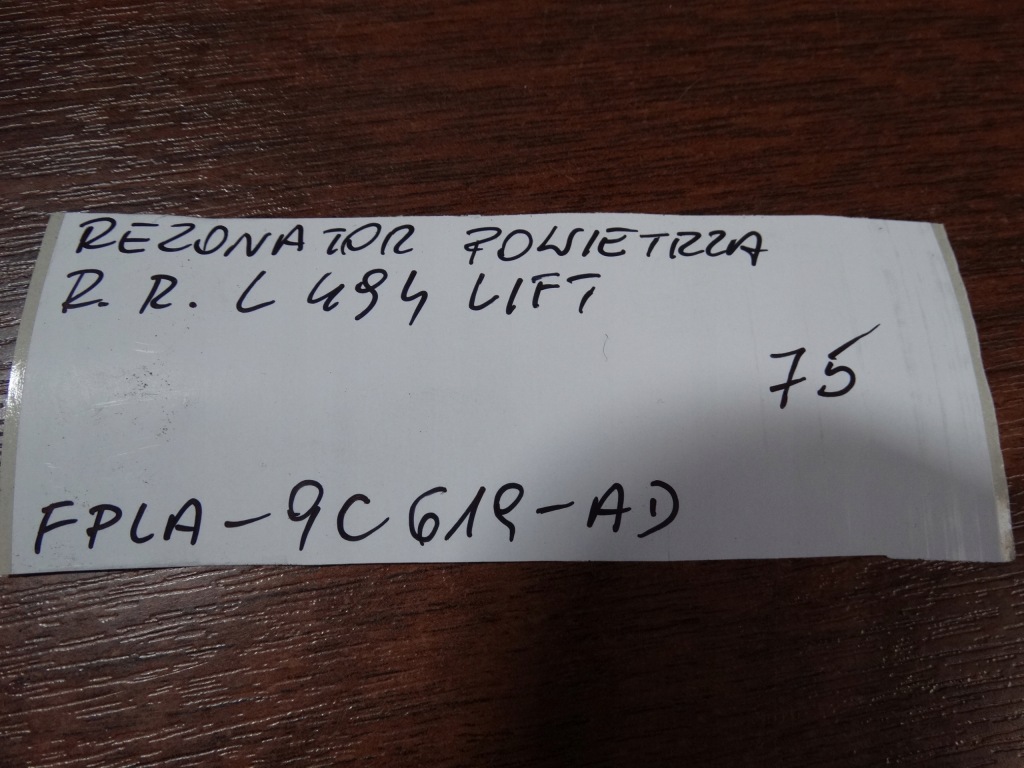 REZONATOR POWIETRZA
R. R. L 494 LIFT
75
FPLA-9C619-AD